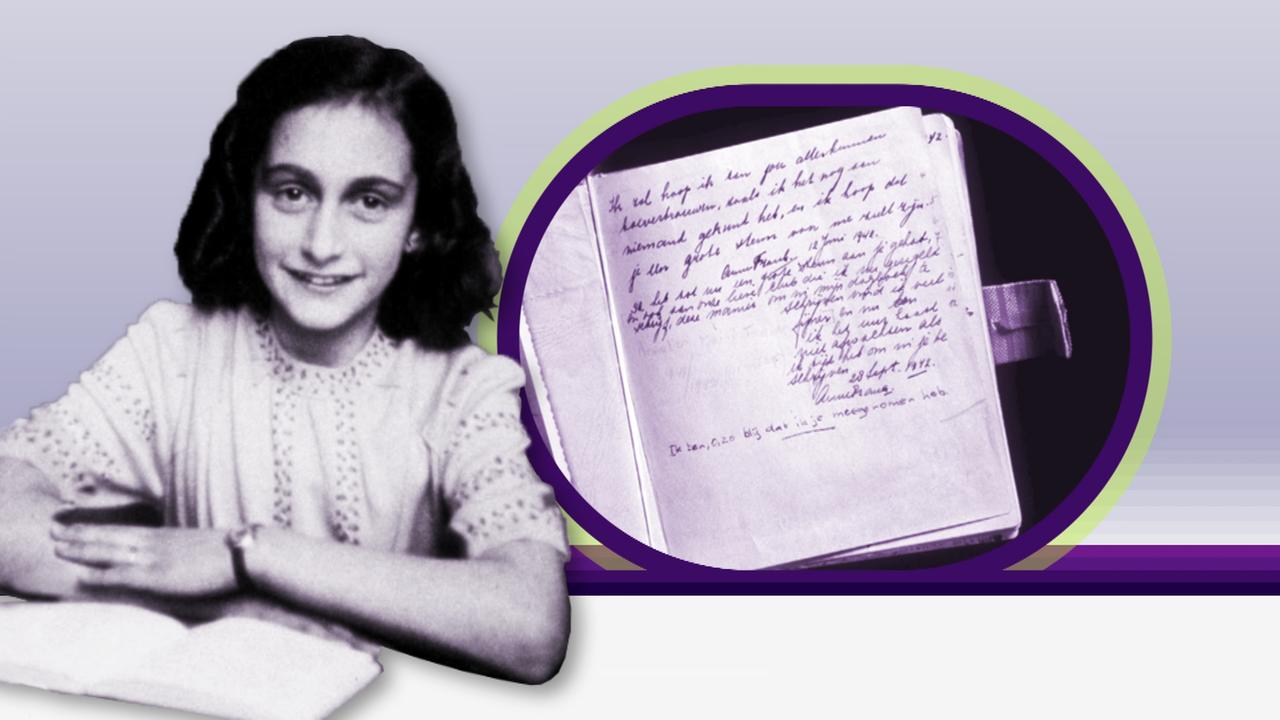 Ik zal hoop ik aan jou alles kunnen
toevertrouwen, zoals ik het nog aan
niemand gekund heb, en ik hoop dat
je een grote steun van me zult zijn.
Anne Frank. 12 Juni 1942.
Ik heb tot nu een grote steun aan je gehad,
en ook aan onze lieve club die ik nu geregeld
schrijf, deze manier om in mijn dagboek te
schrijven vind ik veel
fijner en nu kan
ik het uur haast
niet afwachten als
ik tijd heb om in je te
schrijven
28 Sept. 1942.
Anne Frank
Ik ben, o, zo blij dat ik je meegenomen heb
42.